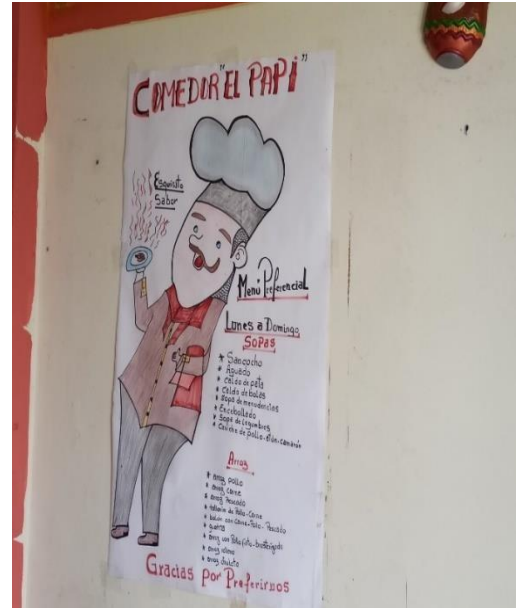 COMEDOR "EL PAPi"
Esquisito
Sabor
Menú Preferencial
Lunes a Domingo
SOPAS
* Sancocho
* Aguado
* Caldo de pata
* Caldo de bolas
* Sopa de menudencias
* Encebollado
* Sopa de legumbres
* Ceviche de pollo-atún-camarón
Arroz
* arroz pollo
* arroz carne
* arroz Pescado
* tallarin de Pollo-Carne
* bolon con Carne-Pollo-Pescado
* guatita
* arroz con Pollo frito-
* arroz
* arroz chuleta
Gracias por Preferirnos